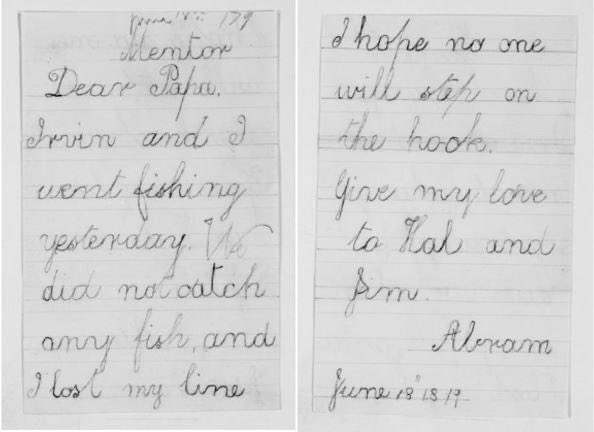 June 18th 179
Mentor
Dear Papa.
Irvin and I
went fishing
yesterday. We
did not catch
any fish, and
I lost my line
I hope no one
will step on
the hook.
Give my love
to Hal and
Jim.
Abram
June 18" 1819